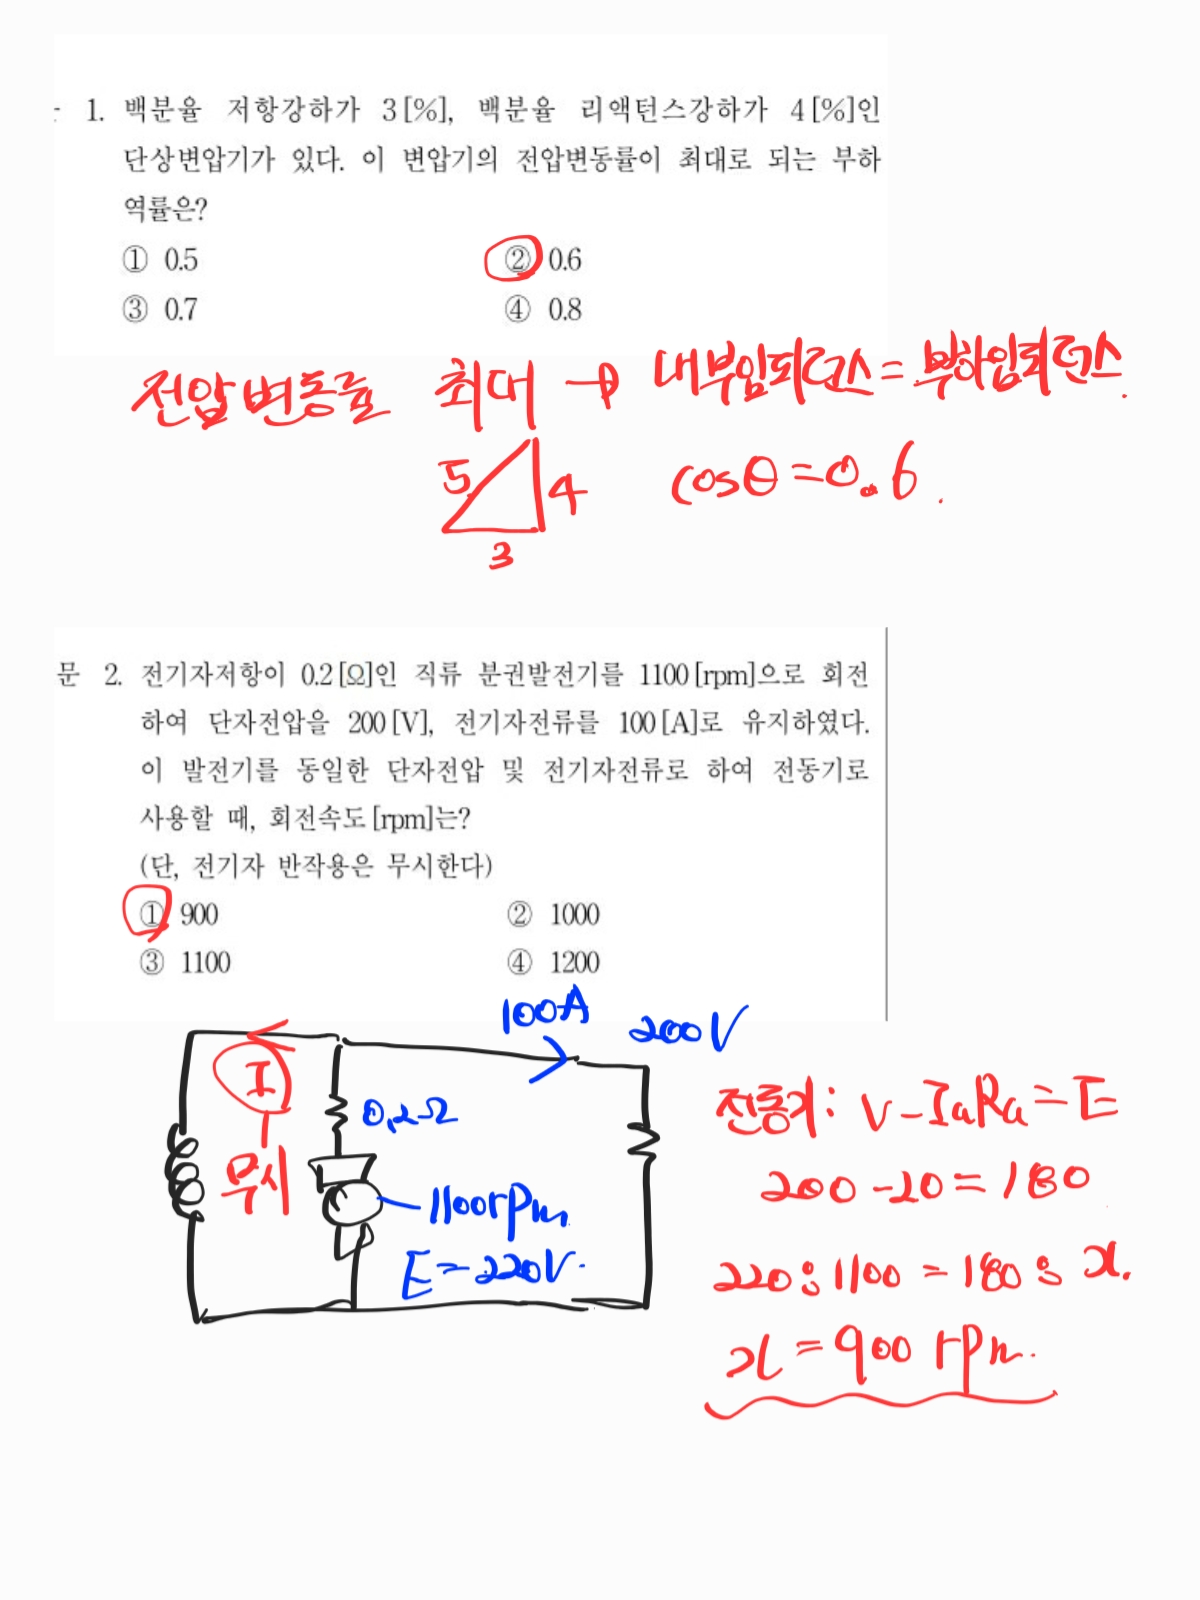 1. 백분율 저항강하가 3[%], 백분율 리액턴스강하가 4[%]인
단상변압기가 있다. 이 변압기의 전압변동률이 최대로 되는 부하
역률은?
① 0.5 ② 0.6
③ 0.7 ④ 0.8
전압변동률 최대 → 내부임피던스 = 부하임피던스.
5 4 cosθ = 0.6.
3
문 2. 전기자저항이 0.2[Ω]인 직류 분권발전기를 1100[rpm]으로 회전
하여 단자전압을 200[V], 전기자전류를 100[A]로 유지하였다.
이 발전기를 동일한 단자전압 및 전기자전류로 하여 전동기로
사용할 때, 회전속도[rpm]는?
(단, 전기자 반작용은 무시한다)
① 900 ② 1000
③ 1100 ④ 1200
100A 200V
I
무시
0.2Ω
1100rpm
E=220V.
전동기: V-IaRa=E
200-20=180
220:1100=180:x.
x=900rpm.